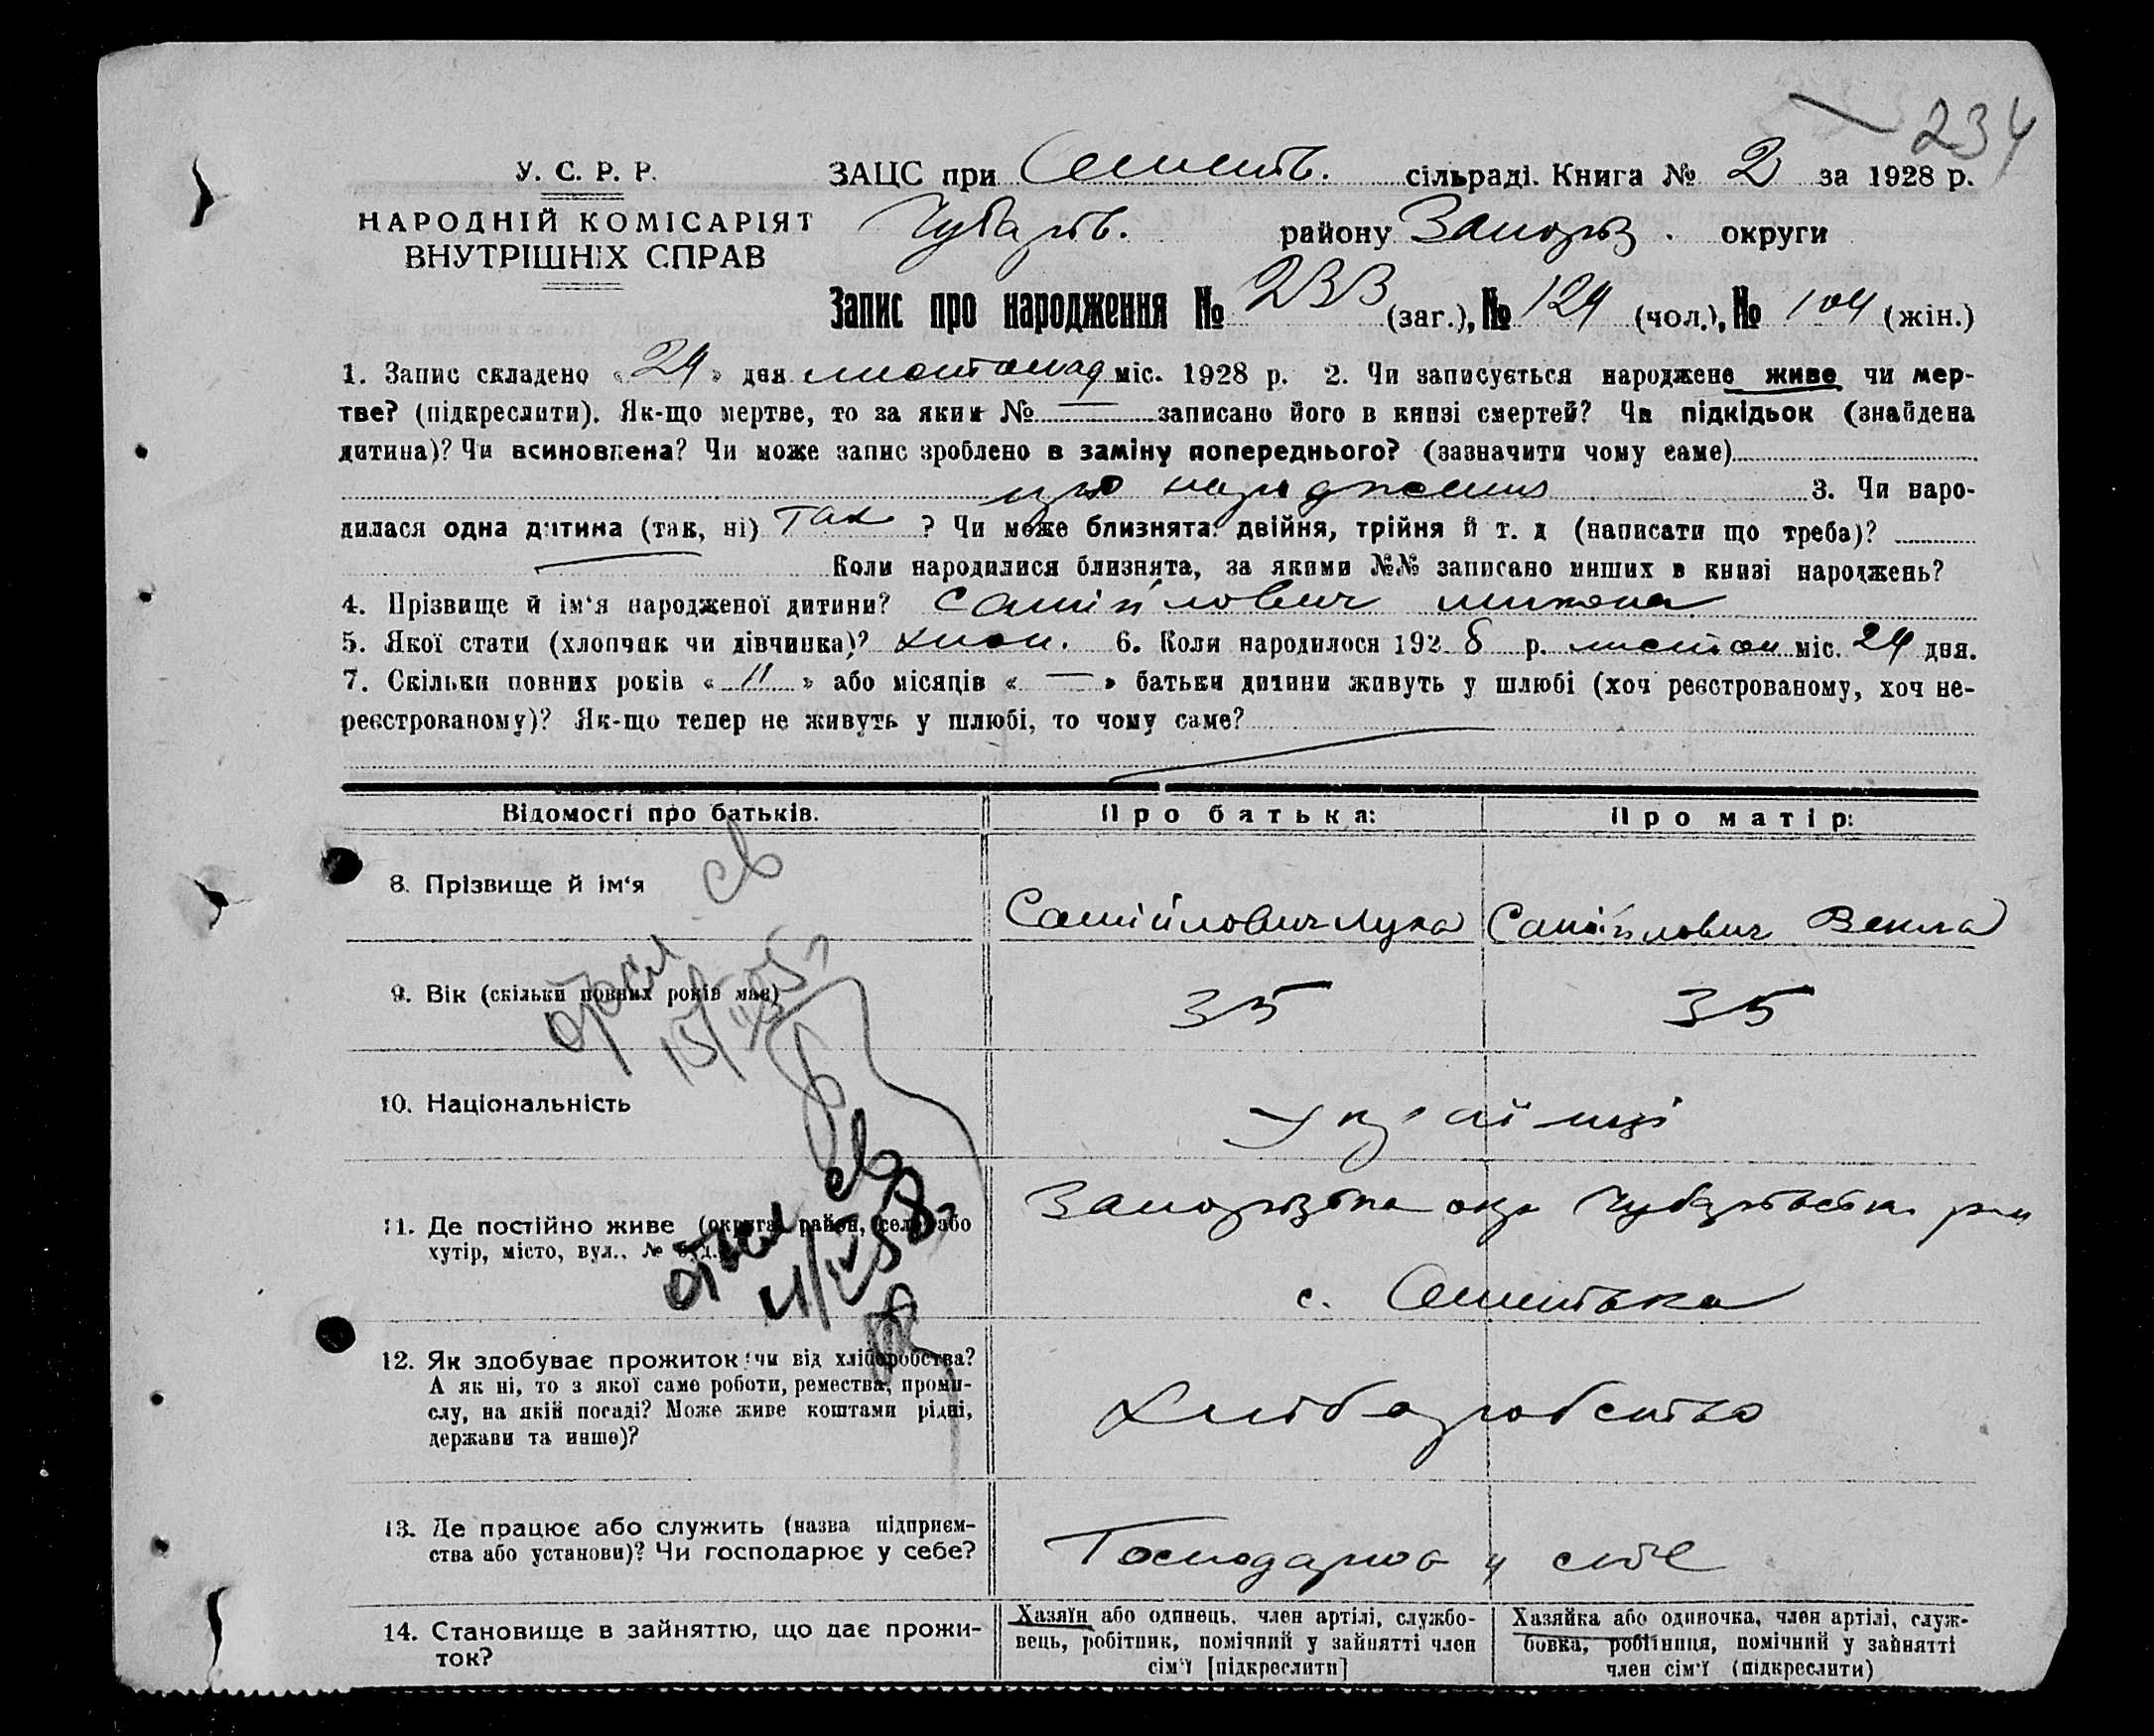 234
У. С. Р. Р.
НАРОДНІЙ КОМІСАРІЯТ
ВНУТРІШНІХ СПРАВ
ЗАЦС при сільраді. Книга № 2 за 1928 р.
Чубарів. району Запоріз. округи
Запис про народження № 233 (заг.), № 129 (чол.), № 104 (жін.)
1. Запис складено « 24 » дня листопад міс. 1928 р. 2. Чи записується народжене живе чи мер-
тве? (підкреслити). Як-що мертве, то за яким № — записано його в книзі смертей? Чи підкідьок (знайдена
дитина)? Чи всиновлена? Чи може запис зроблено в заміну попереднього? (зазначити чому саме)
про народження 3. Чи наро-
дилася одна дитина (так, ні) Так ? Чи може близнята: двійня, трійня й т. д (написати що треба)?
Коли народилися близнята, за якими №№ записано инших в книзі народжень?
4. Прізвище й ім‘я народженої дитини? Самійлович Микола
5. Якої стати (хлопчик чи дівчинка)? хлоп. 6. Коли народилося 192 8 р. листоп міс. 24 дня.
7. Скільки повних років « 11 » або місяців « — » батьки дитини живуть у шлюбі (хоч реєстрованому, хоч не-
реєстрованому)? Як-що тепер не живуть у шлюбі, то чому саме?
Відомості про батьків. Про батька: Про матір:
8. Прізвище й ім‘я Самійлович Лука Самійлович Векла
9. Вік (скільки повних років має) 35 35
10. Національність Українці
11. Де постійно живе (округа, район, село або
хутір, місто, вул., № буд.) Запорізька окр Чубарівськ. р-н
с.
12. Як здобуває прожиток: чи від хліборобства?
А як ні, то з якої саме роботи, ремества, проми-
слу, на якій посаді? Може живе коштами рідні,
держави та инше)?
Хліборобство
13. Де працює або служить (назва підприєм-
ства або установи)? Чи господарює у себе?
Господарює у себе
14. Становище в зайняттю, що дає прожи-
ток?
Хазяїн або одинець, член артілі, службо-
вець, робітник, помічний у зайнятті член
сім‘ї [підкреслити]
Хазяйка або одиночка, член артілі, служ-
бовка, робітниця, помічний у зайнятті
член сім‘ї (підкреслити)